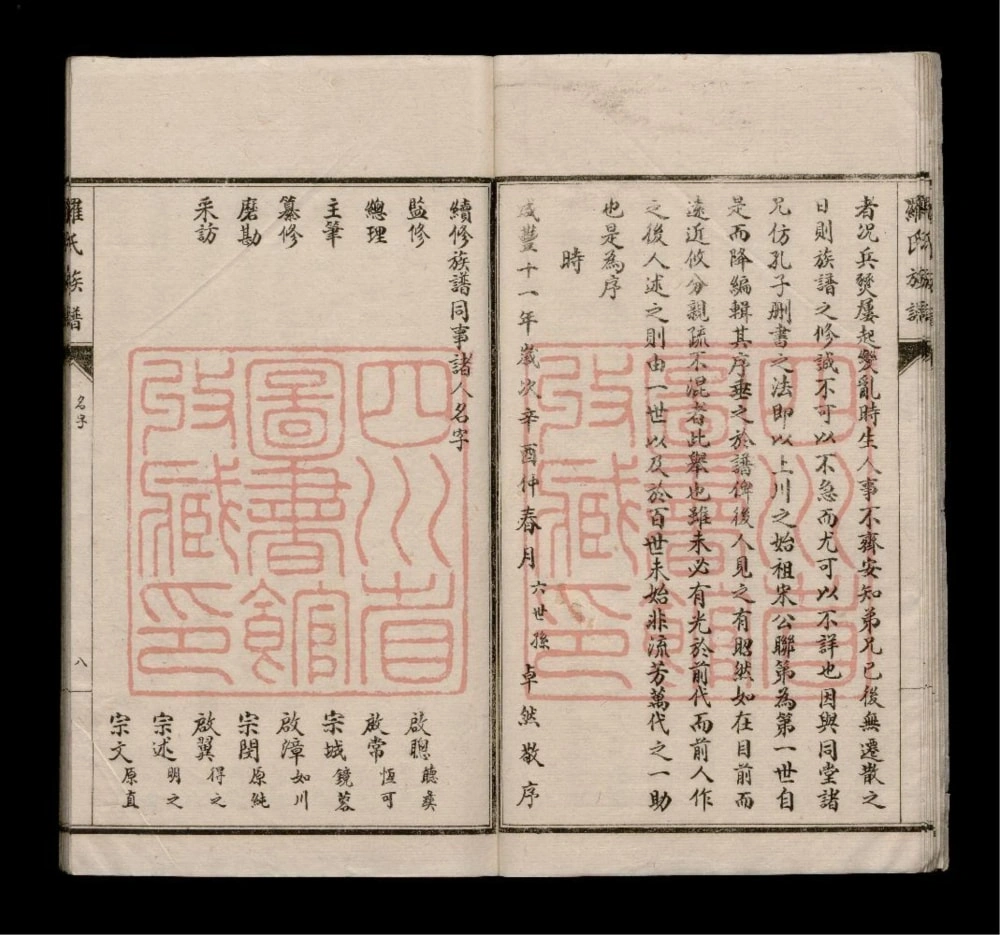 者況兵燹屢起變亂時生人事不齊安知弟兄已後無遷散之
日則族譜之修誠不可以不急而尤可以不詳也因與同堂諸
兄仿孔子刪書之法即以上川之始祖宋公聯第為第一世自
是而降編輯其序垂之於譜俾後人見之有昭然如在目前而
遠近攸分親疏不混者此舉也雖未必有光於前代而前人作
之後人述之則由一世以及於百世未始非流芳萬代之一助
也是為序
時
咸豐十一年歲次辛酉仲春月 六世孫 卓然敬序
續修族譜同事諸人名字
監修 啟聰 聽彝
總理 啟常 恆可
主筆 宗城 鏡蓉
纂修 啟漳 如川
磨勘 宗閔 原純
采訪 啟翼 得之
宗述 明之
宗文 原直
羅氏族譜
名字
八
羅氏族譜
四川省
圖書館
收藏印
四川省
圖書館
收藏印